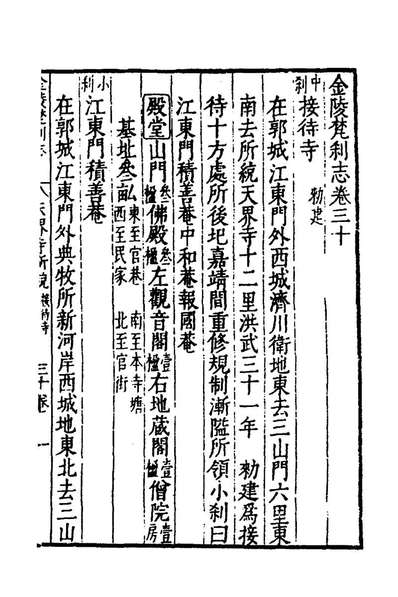 金陵梵刹志卷三十
中刹
接待寺 勑建
在郭城江東門外西城濟川衛地東去三山門六里東
南去所統天界寺十二里洪武三十一年 勑建爲接
待十方處所後圮嘉靖間重修規制漸隘所領小刹曰
江東門積善菴中和菴報國菴
殿堂山門叁楹佛殿叁楹左觀音閣壹楹右地藏閣壹楹僧院壹房
基址叁畝東至官巷 南至本寺塘
西至民家 北至官街
小刹
江東門積善菴
在郭城江東門外典牧所新河岸西城地東北去三山
金陵梵刹志 天界寺所統 接待寺 三十卷 一